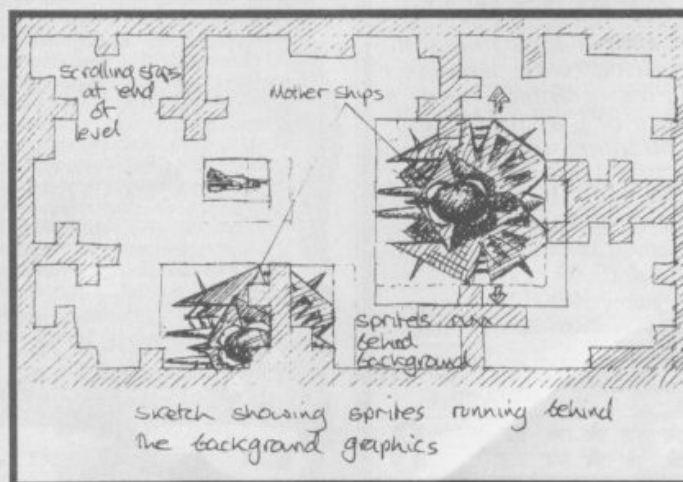 Scrolling stops
at end
of
level
Mother Ships
Sprites runx
behind
background
Sketch showing sprites running behind
the background graphics